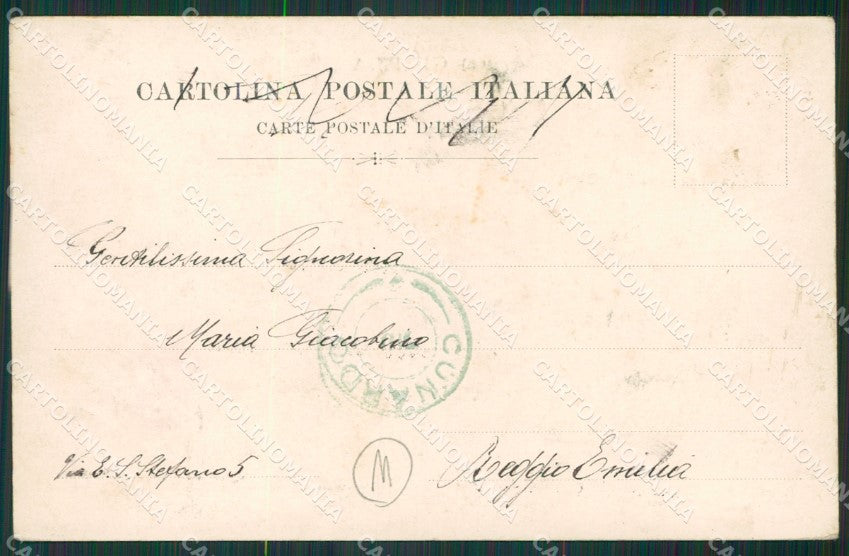 CARTOLINA POSTALE ITALIANA
CARTE POSTALE D'ITALIE
Gentilissima Signorina
Maria Giacobino
CUNARDO
Via E. S. Stefano 5
M
Reggio Emilia
CARTOLINOMANIA